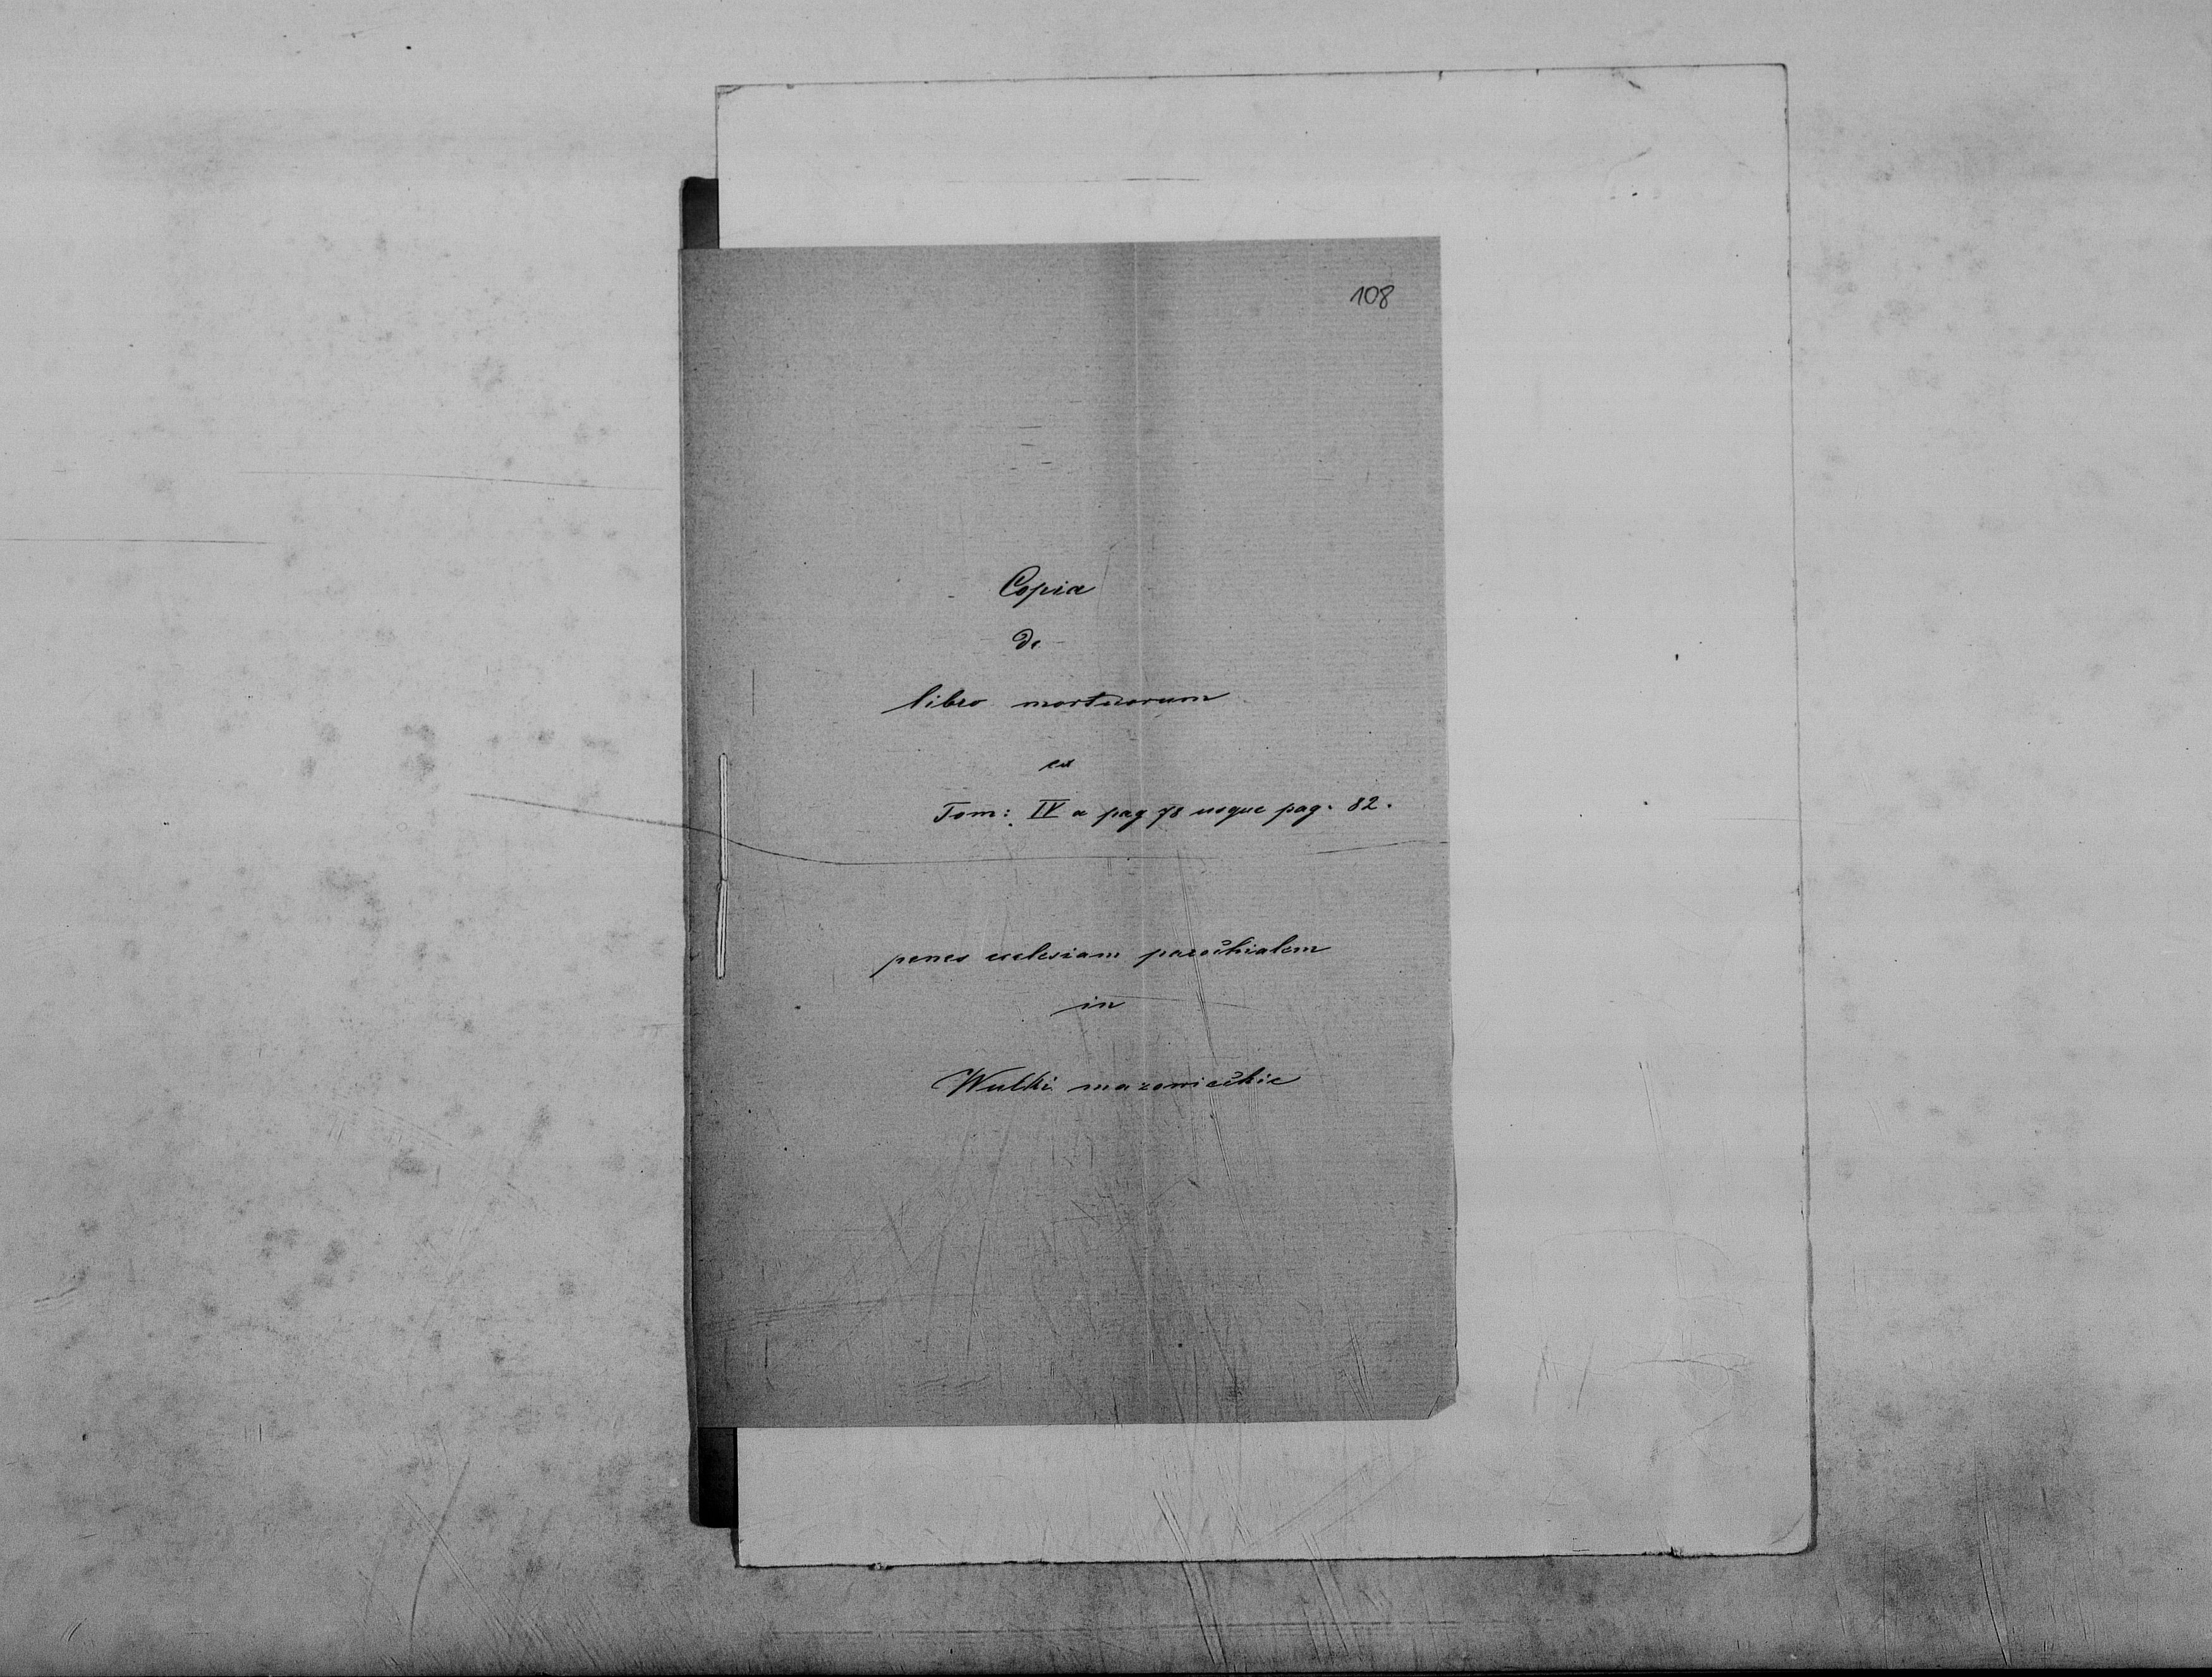 108
Copia
de
libro mortuorum
ex
Tom: IV a pag 78 usque pag. 82.
penes ecclesiam parochialem
in
Wulki mazowieckie